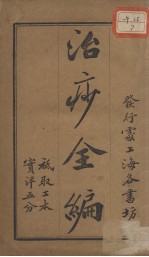 發行處上海各書坊
治痧全編
祗取工本
實洋五分